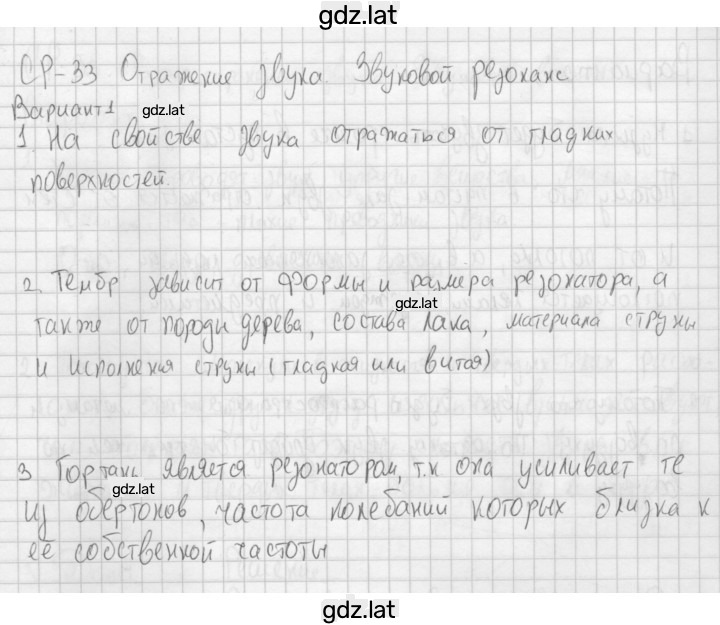 gdz.lat
СР-33 Отражение звука. Звуковой резонанс
Вариант 1
gdz.lat
1. На свойстве звука отражаться от гладких
поверхностей.
2. Тембр зависит от формы и размера резонатора, а
gdz.lat
также от породы дерева, состава лака, материала струны
и исполнения струны (гладкая или витая)
3 Гортань является резонатором, т.к она усиливает те
gdz.lat
из обертонов, частота колебаний которых близка к
её собственной частоты
gdz.lat
gdz.lat